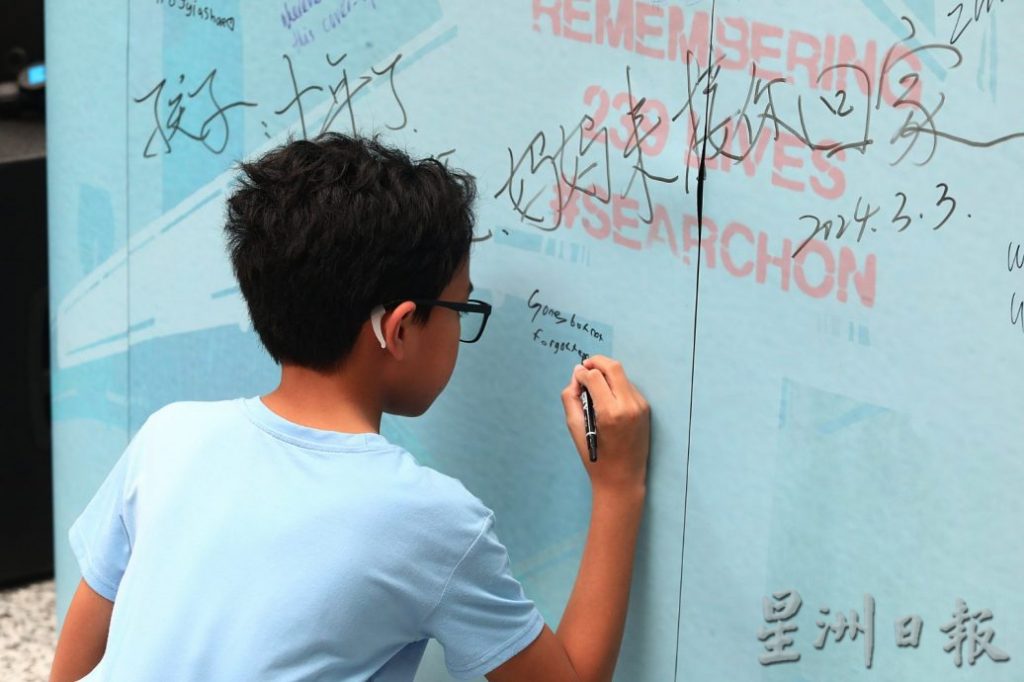 this cover-up
REMEMBERING
239 LIVES
#SEARCHON
孩子、十年了
妈妈来接你回家
2024.3.3.
but not
星洲日報